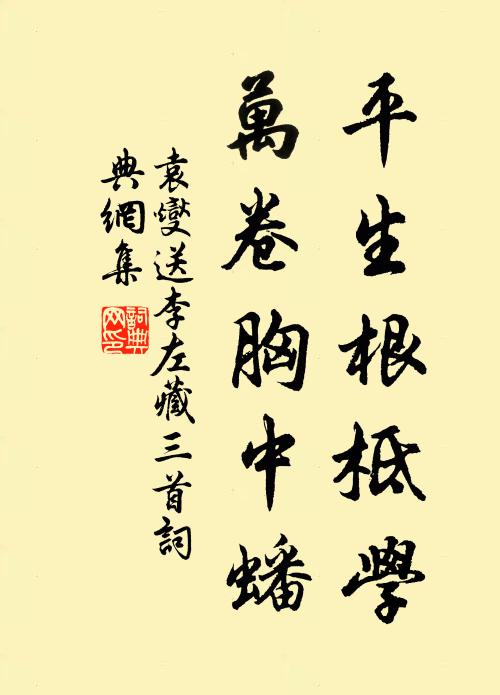 平生根柢學
萬卷胸中蟠
袁燮送李左藏三首詞
典網集
詞典
网印